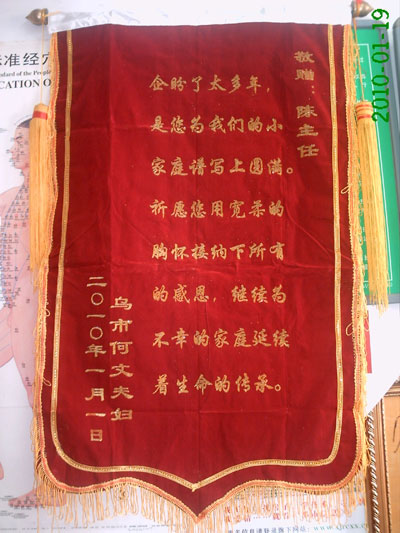 敬赠：陈主任
企盼了太多年，
是您为我们的小
家庭谱写上圆满。
祈愿您用宽柔的
胸怀接纳下所有
的感恩，继续为
不幸的家庭延续
着生命的传承。
乌市何文夫妇
二〇一〇年一月一日
2010-01-19
标准经穴